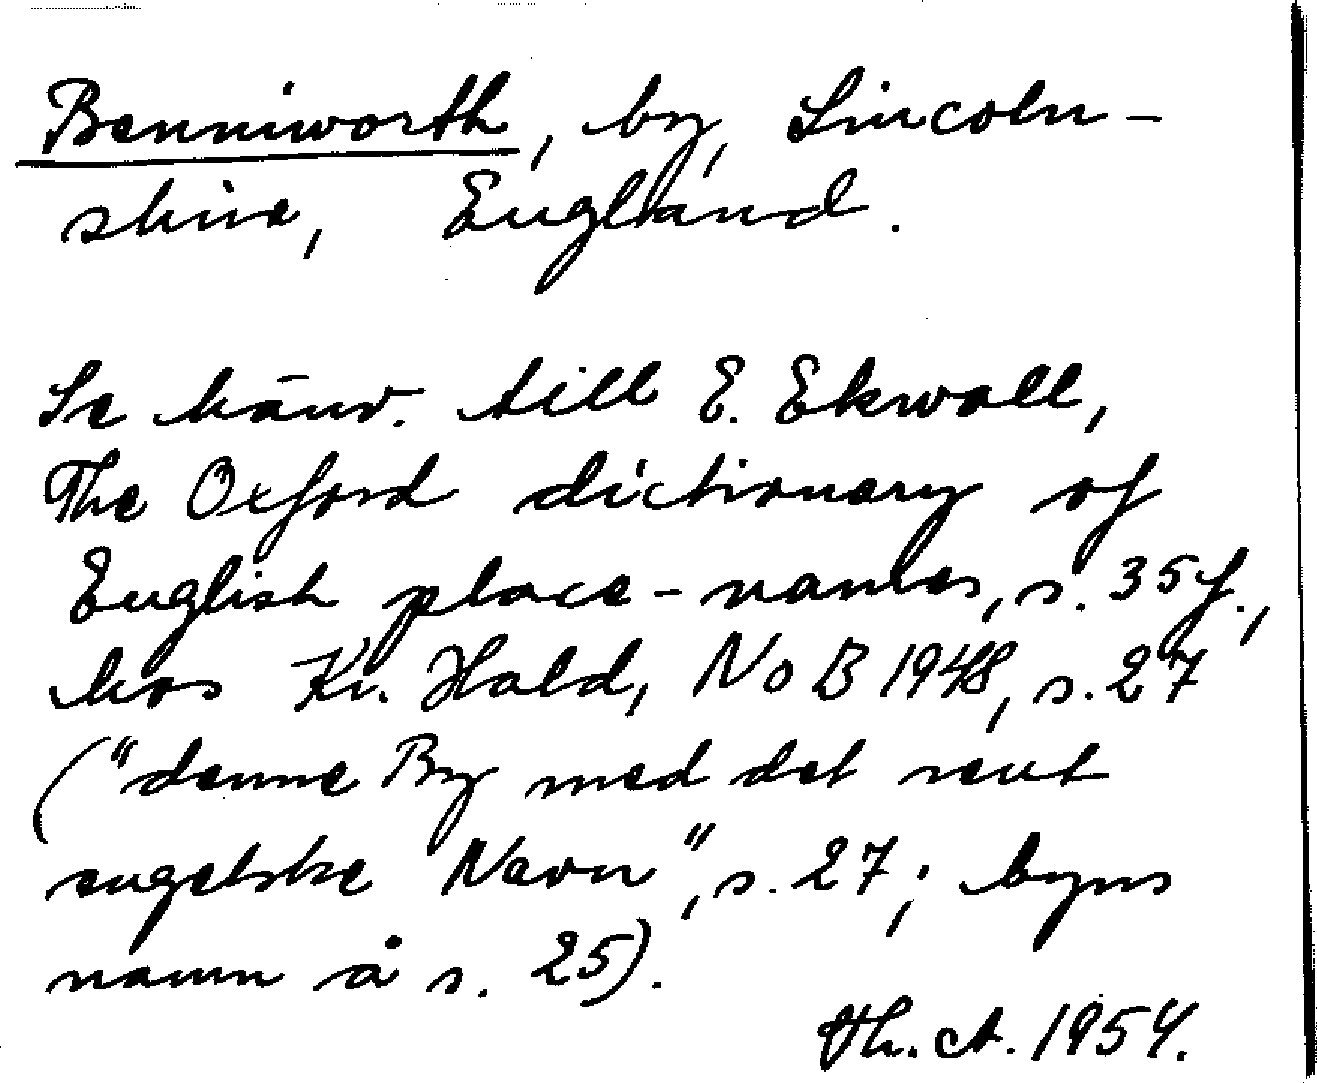 Benniworth, by, Lincoln-
shire, England.
Se hänv. till E. Ekwall,
The Oxford dictionary of
English place-names, s. 35 f.,
hos Kr. Hald, NoB 1948, s. 27
("denne By med det rent
engelske Navn", s. 27; byns
namn å s. 25).
Th. A. 1954.